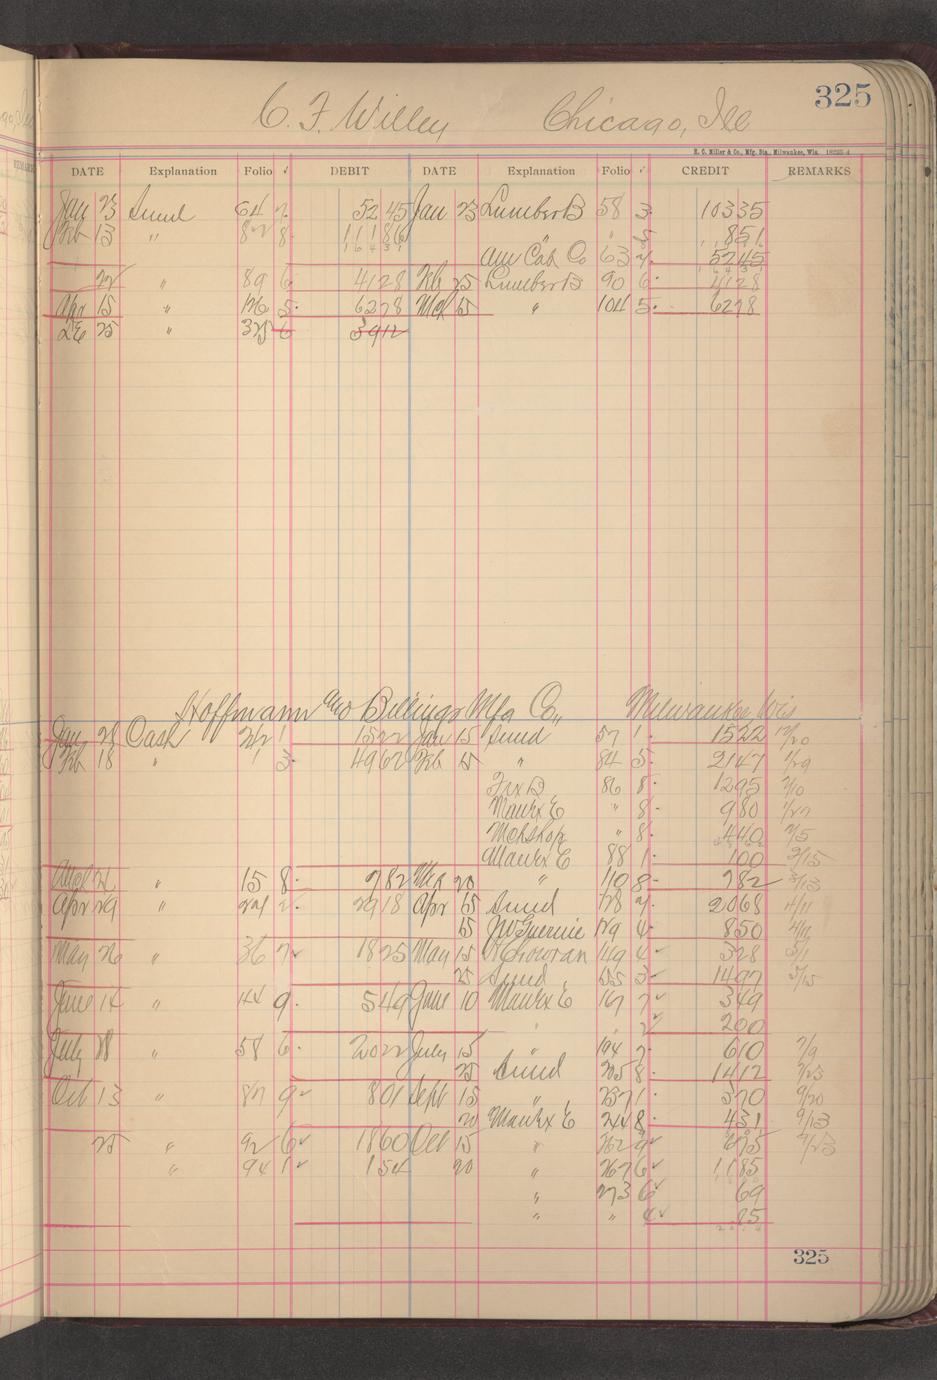 C. F. Willey Chicago, Ill 325
R. C. Miller & Co., Mfg. Sta., Milwaukee, Wis.
DATE Explanation Folio ✓ DEBIT DATE Explanation Folio ✓ CREDIT REMARKS
Jan 23 Sund 64 7 5245 Jan 23 Lumber B 58 3 10335
Feb 13 " 82 8 11186 " " 5 851
16431 Am Cas Co 63 7 5245
22 " 89 6 4128 Feb 25 Lumber B 90 6 4128
Apr 15 " 126 5 6278 Mch 15 " 104 5 6278
25 " 325 6 3912
Hoffmann and Billings Mfg Co., Milwaukee, Wis
Jan 28 Cash 1 1522 Jan 15 Sund 57 1 1522
Feb 18 " 3 4962 Feb 15 " 84 5 2147 1/29
86 8 1295 2/10
Mauf x E " 8 980 1/27
Mch shop " 8 440 2/5
Mauf x E 88 1 100 2/15
21 " 15 8 782 20 " 110 8 782 3/13
Apr 29 " 2918 Apr 15 Sund 128 7 2068 4/11
15 129 4 850
May 26 " 36 7 1825 May 15 149 4 328 5/1
25 Sund 155 3 1497 5/15
June 14 " 44 9 549 June 10 Mauf x E 167 7 349
" " 200
July 18 " 58 6 2022 July 15 " 194 7 610 7/9
25 Sund 205 8 1412 7/23
Oct 13 " 87 9 801 Sept 15 " 237 1 370 9/20
20 Mauf x E 244 8 431 9/13
25 " 92 6 1860 Oct 15 " 262 9 675 9/23
" 94 1 154 20 " 267 6 1185
" 273 6 69
" " 4 85
325